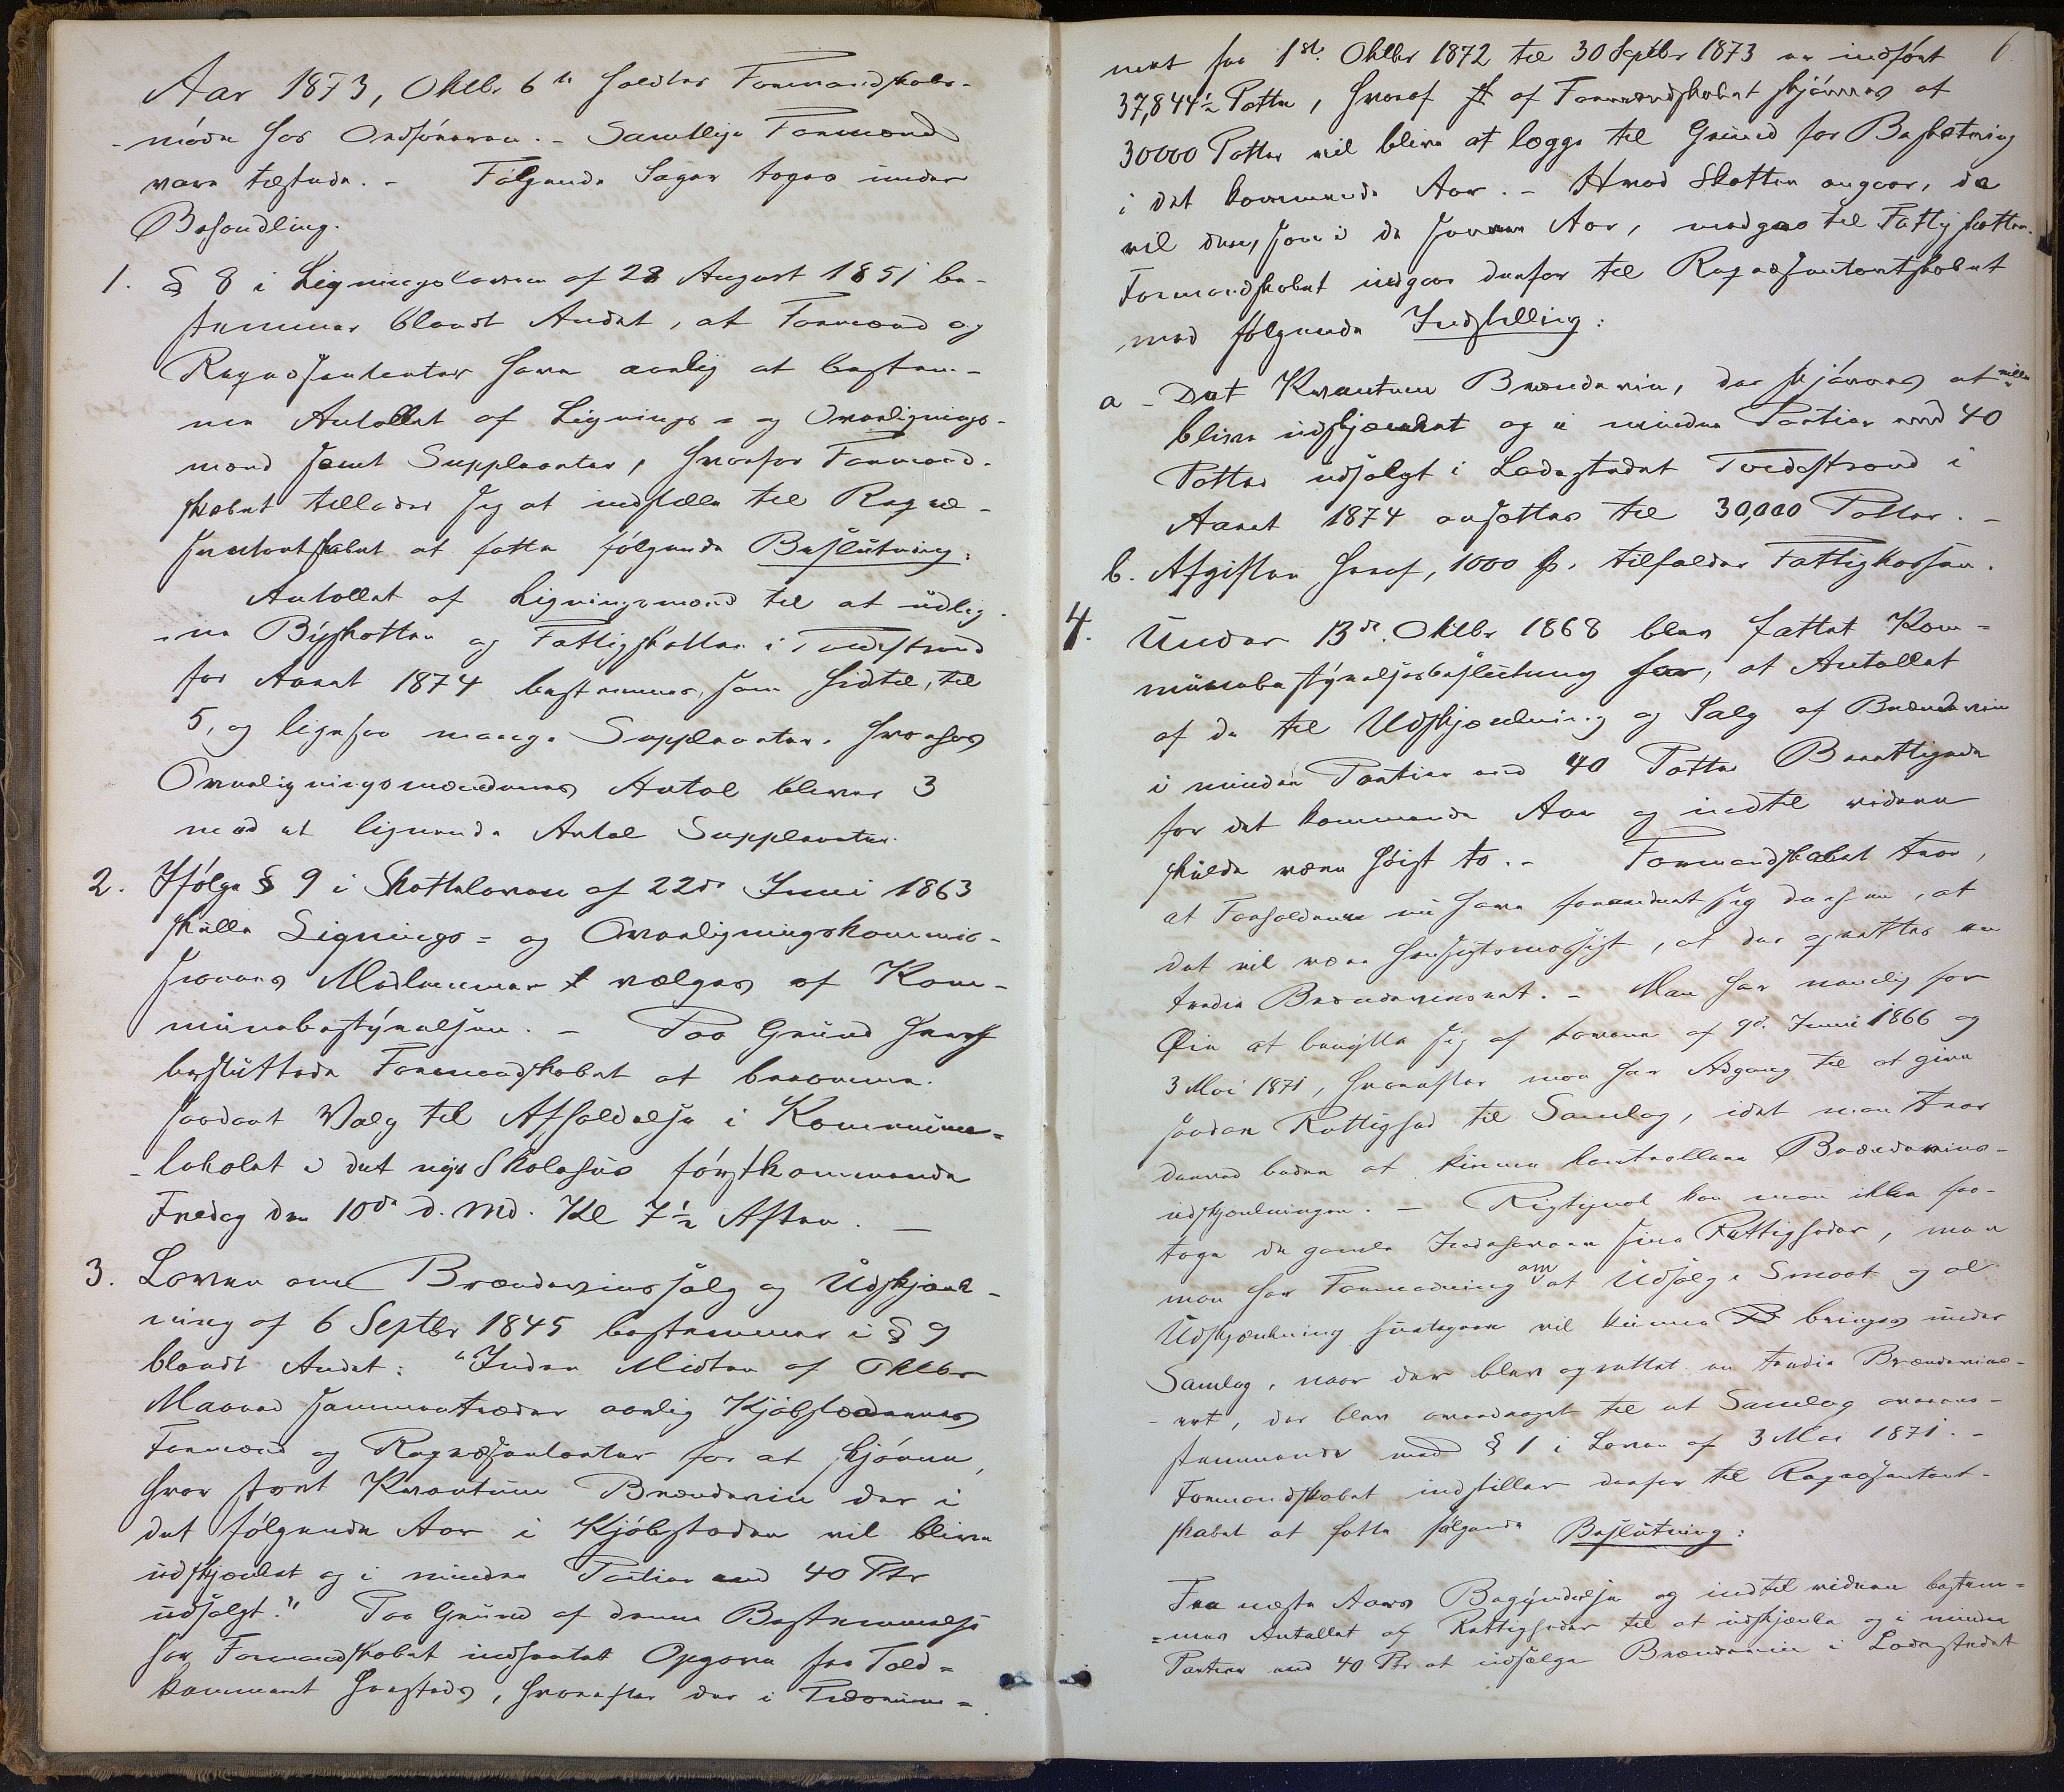 Aar 1873, Oktbr 6te holdtes Formandskabs-
-møde hos Ordføreren. - Samtlige Formænd
vare tilstede. - Følgende Sager toges under
Behandling.
1. § 8 i Ligningsloven af 28 August 1851 be-
stemmer blandt Andet, at Formænd og
Repræsentanter have aarlig at bestem-
me Antallet af Lignings- og Overlignings-
mænd samt Suppleanter, hvorfor Formand-
skabet tillader sig at indstille til Repræ-
sentantskabet at fatte følgende Beslutning:
Antallet af Ligningsmænd til at udlig-
-ne Byskatten og Fattigskatten i Tvedestrand
for Aaret 1874 bestemmes, som hidtil, til
5, og ligesaa mange Suppleanter, hvorhos
Overligningsmændenes Antal bliver 3
med et lignende Antal Suppleanter.
2. Ifølge § 9 i Skatteloven af 22de Juni 1863
skulle Lignings- og Overligningskommis-
sionens Medlemmer vælges af Kom-
munebestyrelsen. - Paa Grund heraf
besluttede Formandskabet at beramme
saadant Valg til Afholdelse i Kommune-
-lokalet i det nye Skolehus førstkommende
Fredag den 10de d. Md. Kl 7½ Aften. -
3. Loven om Brændevinssalg og Udskjænk-
ning af 6 Septbr 1845 bestemmer i § 9
blandt Andet: "Inden Midten af Oktbr
Maaned sammentræder aarlig Kjøbstædernes
Formænd og Repræsentanter for at skjønne,
hvor stort Kvantum Brændeviin der i
det følgende Aar i Kjøbstaden vil blive
udskjænket og i mindre Partier end 40 Ptr
udsolgt." Paa Grund af denne Bestemmelse
har Formandskabet indhentet Opgave fra Told-
kammeret hersteds, hvorefter der i Tidsrum-
6.
met fra 1ste Oktbr 1872 til 30 Septbr 1873 er indført
37,844½ Potter, hvoraf af Formandskabet skjønnes at
30000 Potter vil blive at lægge til Grund for Beskatning
i det kommende Aar. - Hvad Skatten angaar, da
vil den, som i de senere Aar, medgaa til Fattigskatten.
Formandskabet indgaar derfor til Repræsentantskabet
med følgende Indstilling:
a - Det Kvantum Brændeviin, der skjønnes at ville
blive udskjænket og i mindre Partier end 40
Potter udsolgt i Ladestedet Tvedestrand i
Aaret 1874 ansættes til 30,000 Potter. -
b. Afgiften heraf, 1000 Sp. tilfalder Fattigkassen.
4. Under 13de Oktbr 1868 blev fattet Kom-
munebestyrelsesbeslutning for, at Antallet
af de til Udskjænkning og Salg af Brændeviin
i mindre Partier end 40 Potter Berettigede
for det kommende Aar og indtil videre
skulde være høist to. - Formandskabet tror,
at Forholdene nu have forandret sig derhen, at
det vil være hensigtsmæssigt, at der oprettes en
tredie Brændevinsret. - Man har nemlig for
Øie at benytte sig af Lovene af 9de Juni 1866 og
3 Mai 1871, hvorefter man har Adgang til at give
saadan Rettighed til Samlag, idet man tror
derved bedre at kunne kontrollere Brændevins-
udskjænkningen. - Rigtignok kan man ikke fra-
tage de gamle Indehavere sine Rettigheder, men
man har Formodning om at Udsalg i Smaat og al
Udskjænkning suntegnne vil kunne bringes under
Samlag, naar der blev oprettet en tredie Brændevins-
-ret, der blev overdraget til et Samlag overens-
stemmende med § 1 i Loven af 3 Mai 1871. -
Formandskabet indstiller derfor til Repræsentant-
skabet at fatte følgende Beslutning:
Fra næste Aars Begyndelse og indtil videre bestem-
-mes Antallet af Rettigheder til at udskjænke og i mindre
Partier end 40 Ptr at udsælge Brændeviin i Ladestedet